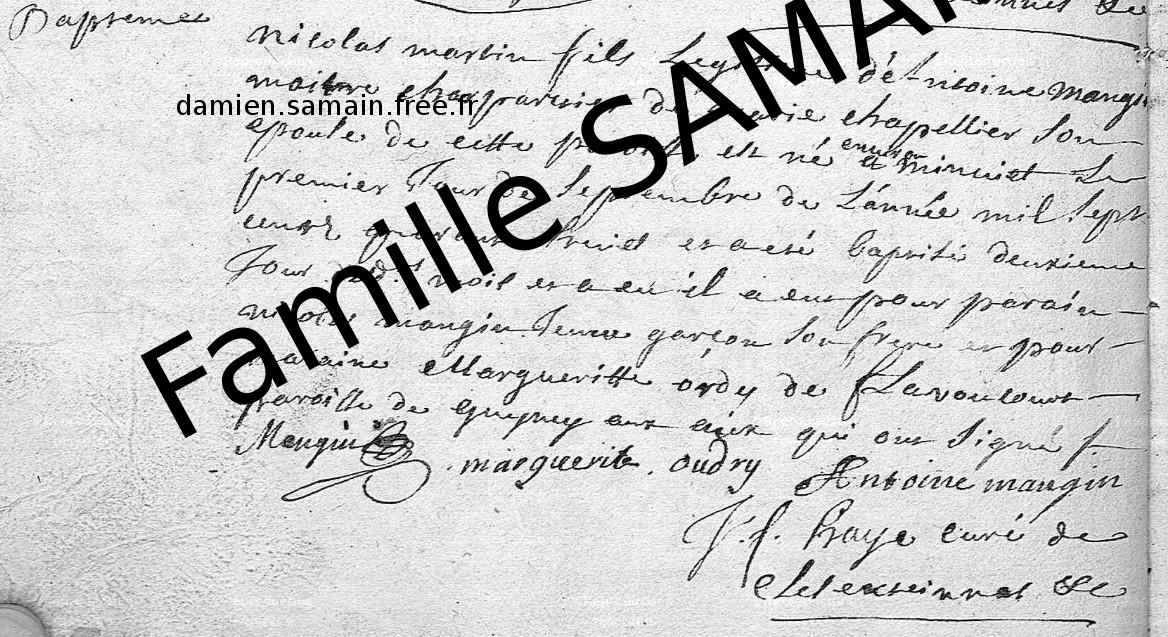 Bapteme
Nicolas martin fils Legitime d'Antoine mangin
maitre charpentier de marie chapellier son
damien.samain.free.fr
epouse de cette paroisse, est né environ a minuict Le
premier Jour de Septembre de L'année mil sept
Famille SAMAIN
cents quarante huict et a eté baptisé deuxieme
Jour dudt mois et a eu il a eut pour parain
nicolas mangin Jeune garçon son frere et pour
maraine Margueritte ordy de flavoucourt
paroisse de gugney aux aux qui ont signé f.
Mangin marguerite. oudry Antoine maugin
J. f. Braye curé de
&c